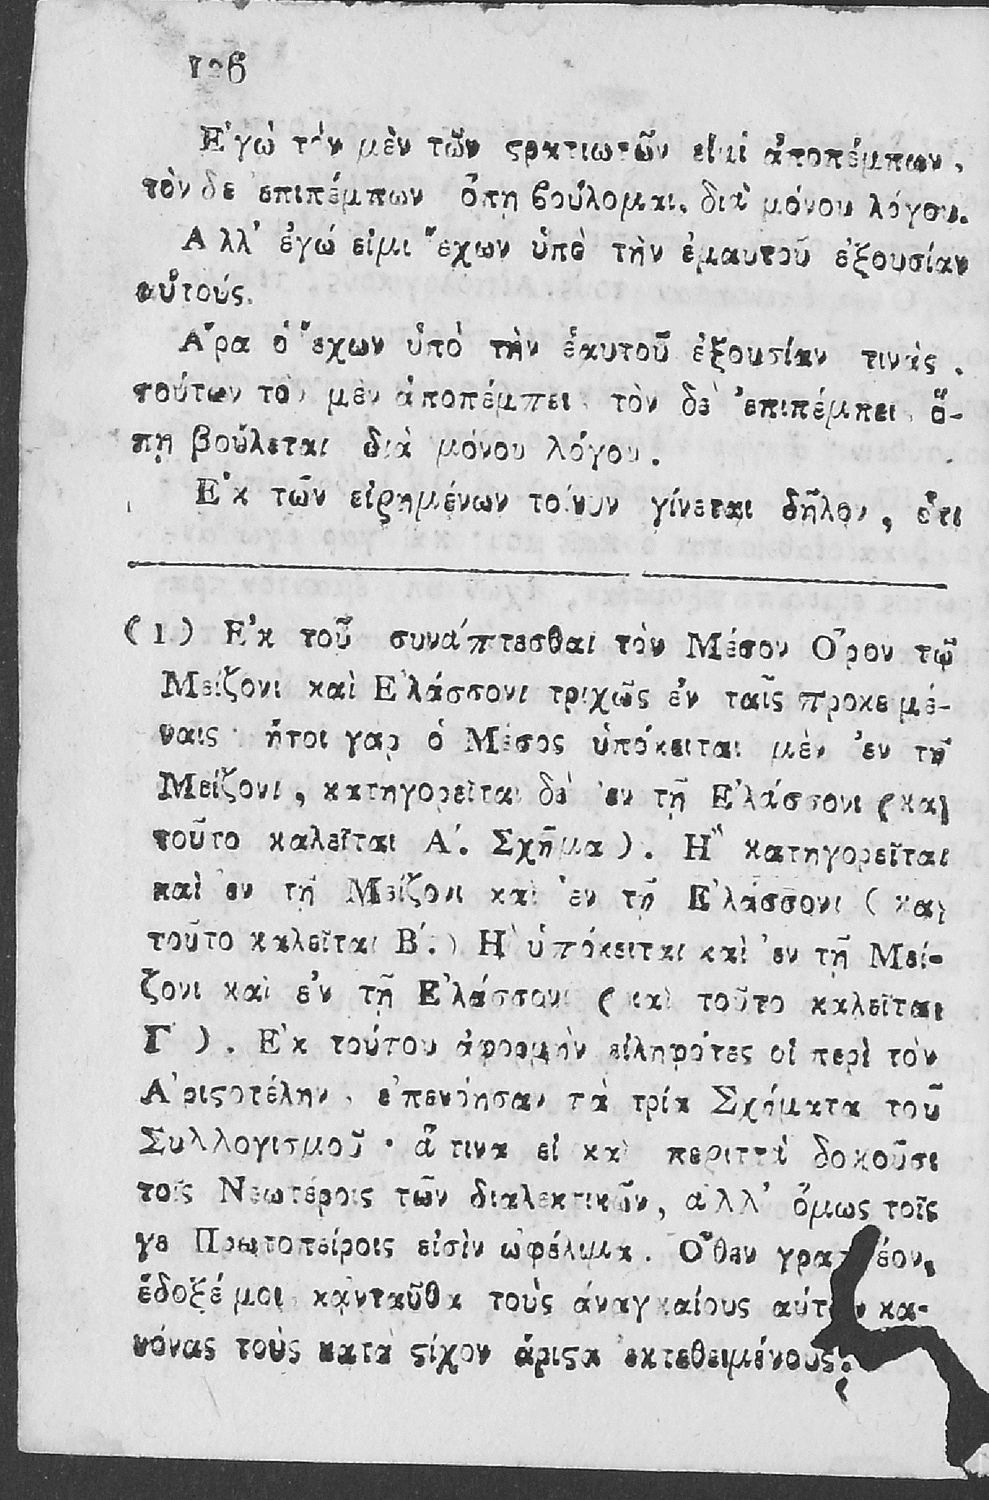 106
Ε᾿γὼ τὸν μὲν τῶν ςρατιωτῶν εἰμὶ ἀποπέμπων,
τὸν δε ἐπιπέμπων ὅπη βούλομαι, διὰ μόνου λόγου.
Α λλ᾿ ἐγώ εἰμι ἔχων ὑπὸ τὴν ἐμαυτοῦ ἐξουσίαν
αὐτούς.
Α῎ρα ὁ ἔχων ὑπὸ τὴν ἑαυτοῦ ἐξουσίαν τινὰς,
τούτων τὸν μὲν ἀποπέμπει, τὸν δὲ ἐπιπέμπει, ὅ-
πη βούλεται διὰ μόνου λόγου.
Ε᾿κ τῶν εἰρημένων τοίνυν γίνεται δῆλον, ὅτι
(1) Ε᾿κ τοῦ συνάπτεσθαι τὸν Μέσον Ο῞ρον τῷ
Μείζονι καὶ Ε᾿λάσσονι τριχῶς ἐν ταῖς προκειμέ-
ναις · ἤτοι γαρ ὁ Μέσος ὑπόκειται μὲν ἐν τῇ
Μείζονι, κατηγορεῖται δὲ ἐν τῇ Ε᾿λάσσονι (καὶ
τοῦτο καλεῖται Α΄. Σχῆμα). Η῍ κατηγορεῖται
καὶ ἐν τῇ Μείζονι καὶ ἐν τῇ Ε᾿λάσσονι (καὶ
τοῦτο καλεῖται Β΄.) Η῍ ὑπόκειται καὶ ἐν τῇ Μεί-
ζονι καὶ ἐν τῇ Ε᾿λάσσονι (καὶ τοῦτο καλεῖται
Γ΄). Ε᾿κ τούτου ἀφορμὴν εἰληφότες οἱ περὶ τὸν
Α᾿ριςοτέλην, ἐπενόησαν τὰ τρία Σχήματα τοῦ
Συλλογισμοῦ · ἅ τινα εἰ καὶ περιττὰ δοκοῦσι
τοῖς Νεωτέροις τῶν διαλεκτικῶν, ἀλλ᾿ ὅμως τοῖς
γε Πρωτοπείροις εἰσὶν ὠφέλιμα. Ο῞θεν γραπτέον,
ἔδοξέ μοι κᾀνταῦθα τοὺς ἀναγκαίους αὐτῶν κα-
νόνας τοὺς κατὰ ςίχον ἄριςα ἐκτεθειμένους.